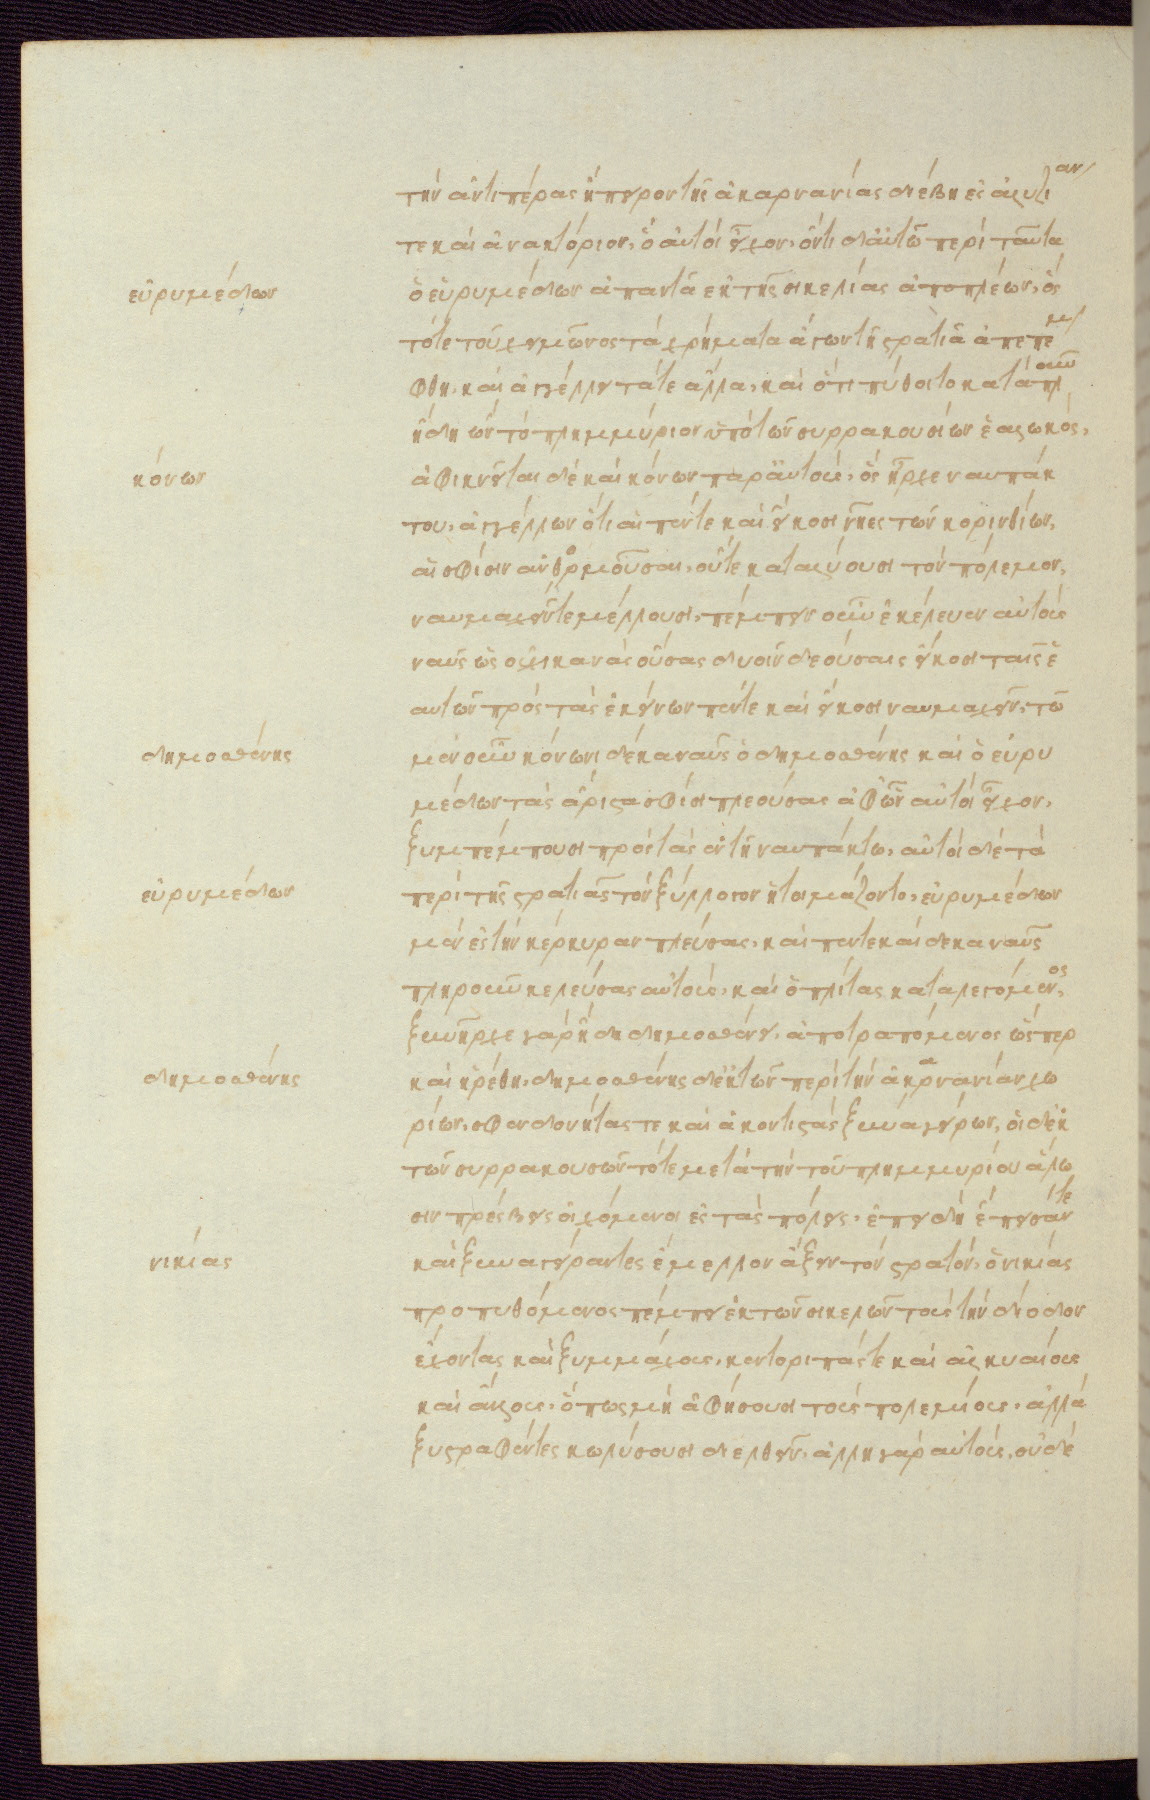 τὴν ἀντιπέρας ἤπειρον τῆς ἀκαρνανίας διέβη ἐς ἀλυζίαν
τε καὶ ἀνακτόριον, ὃ αὐτοὶ εἶχον, ὄντι δ' αὐτῷ περὶ ταῦτα
εὐρυμέδων
ὁ εὐρυμέδων ἀπαντᾷ ἐκ τῆς σικελίας ἀποπλέων, ὃς
τότε τοῦ χειμῶνος τὰ χρήματα ἄγων τῇ στρατιᾷ ἀπεπέμ
φθη, καὶ ἀγγέλλει τά τε ἄλλα, καὶ ὅτι πύθοιτο κατὰ πλοῦν
ἤδη ὢν τὸ πλημμύριον ὑπὸ τῶν συρρακουσίων ἑαλωκός,
κόνων
ἀφικνεῖται δὲ καὶ κόνων παρ' αὐτοὺς, ὃς ἦρχε ναυπάκ
του, ἀγγέλλων ὅτι αἱ πέντε καὶ εἴκοσι νῆες τῶν κορινθίων,
αἱ σφίσιν ἀνθορμοῦσαι, οὔτε καταλύουσι τὸν πόλεμον,
ναυμαχεῖν τε μέλλουσι, πέμπειν οὖν ἐκέλευεν αὐτοὺς
ναῦς ὡς οὐχ ἱκανὰς οὔσας δυοῖν δεούσαις εἴκοσι ταῖς ἑ
αυτῶν πρὸς τὰς ἐκείνων πέντε καὶ εἴκοσι ναυμαχεῖν, τῷ
δημοσθένης
μὲν οὖν κόνωνι δέκα ναῦς ὁ δημοσθένης καὶ ὁ εὐρυ
μέδων τὰς ἄριστα σφίσι πλεούσας ἀφ' ὧν αὐτοὶ εἶχον,
ξυμπέμπουσι πρὸς τὰς ἐν τῇ ναυπάκτω, αὐτοὶ δὲ τὰ
εὐρυμέδων
περὶ τῆς στρατιᾶς τὸν ξύλλογον ἡτοιμάζοντο, εὐρυμέδων
μὲν ἐς τὴν κέρκυραν πλεύσας, καὶ πεντεκαίδεκα ναῦς
πληροῦν κελεύσας αὐτοὺς, καὶ ὁπλίτας καταλεγόμενος,
ξυνῆρχε γὰρ ἤδη δημοσθένει, ἀποτραπόμενος ὥσπερ
δημοσθένης
καὶ ἡρέθη, δημοσθένης δ' ἐκ τῶν περὶ τὴν ἀκαρνανίαν χω
ρίων, σφενδονήτας τε καὶ ἀκοντιστὰς ξυναγείρων, οἱ δ' ἐκ
τῶν συρρακουσῶν τότε μετὰ τὴν τοῦ πλημμυρίου ἅλω
σιν πρέσβεις οἰχόμενοι ἐς τὰς πόλεις, ἐπειδὴ ἔπεισάν τε
νικίας
καὶ ξυναγείραντες ἔμελλον ἄξειν τὸν στρατόν, ὁ νικίας
προπυθόμενος πέμπει ἐκ τῶν σικελῶν τοὺς τὴν δίοδον
ἔχοντας καὶ ξυμμάχους, κεντόριπάς τε καὶ ἀλικυαίους
καὶ ἄλλους, ὅπως μὴ ἀφήσουσι τοὺς πολεμίους, ἀλλὰ
ξυστραφέντες κωλύσουσι διελθεῖν, ἄλλη γὰρ αὐτοὺς, οὐδὲ